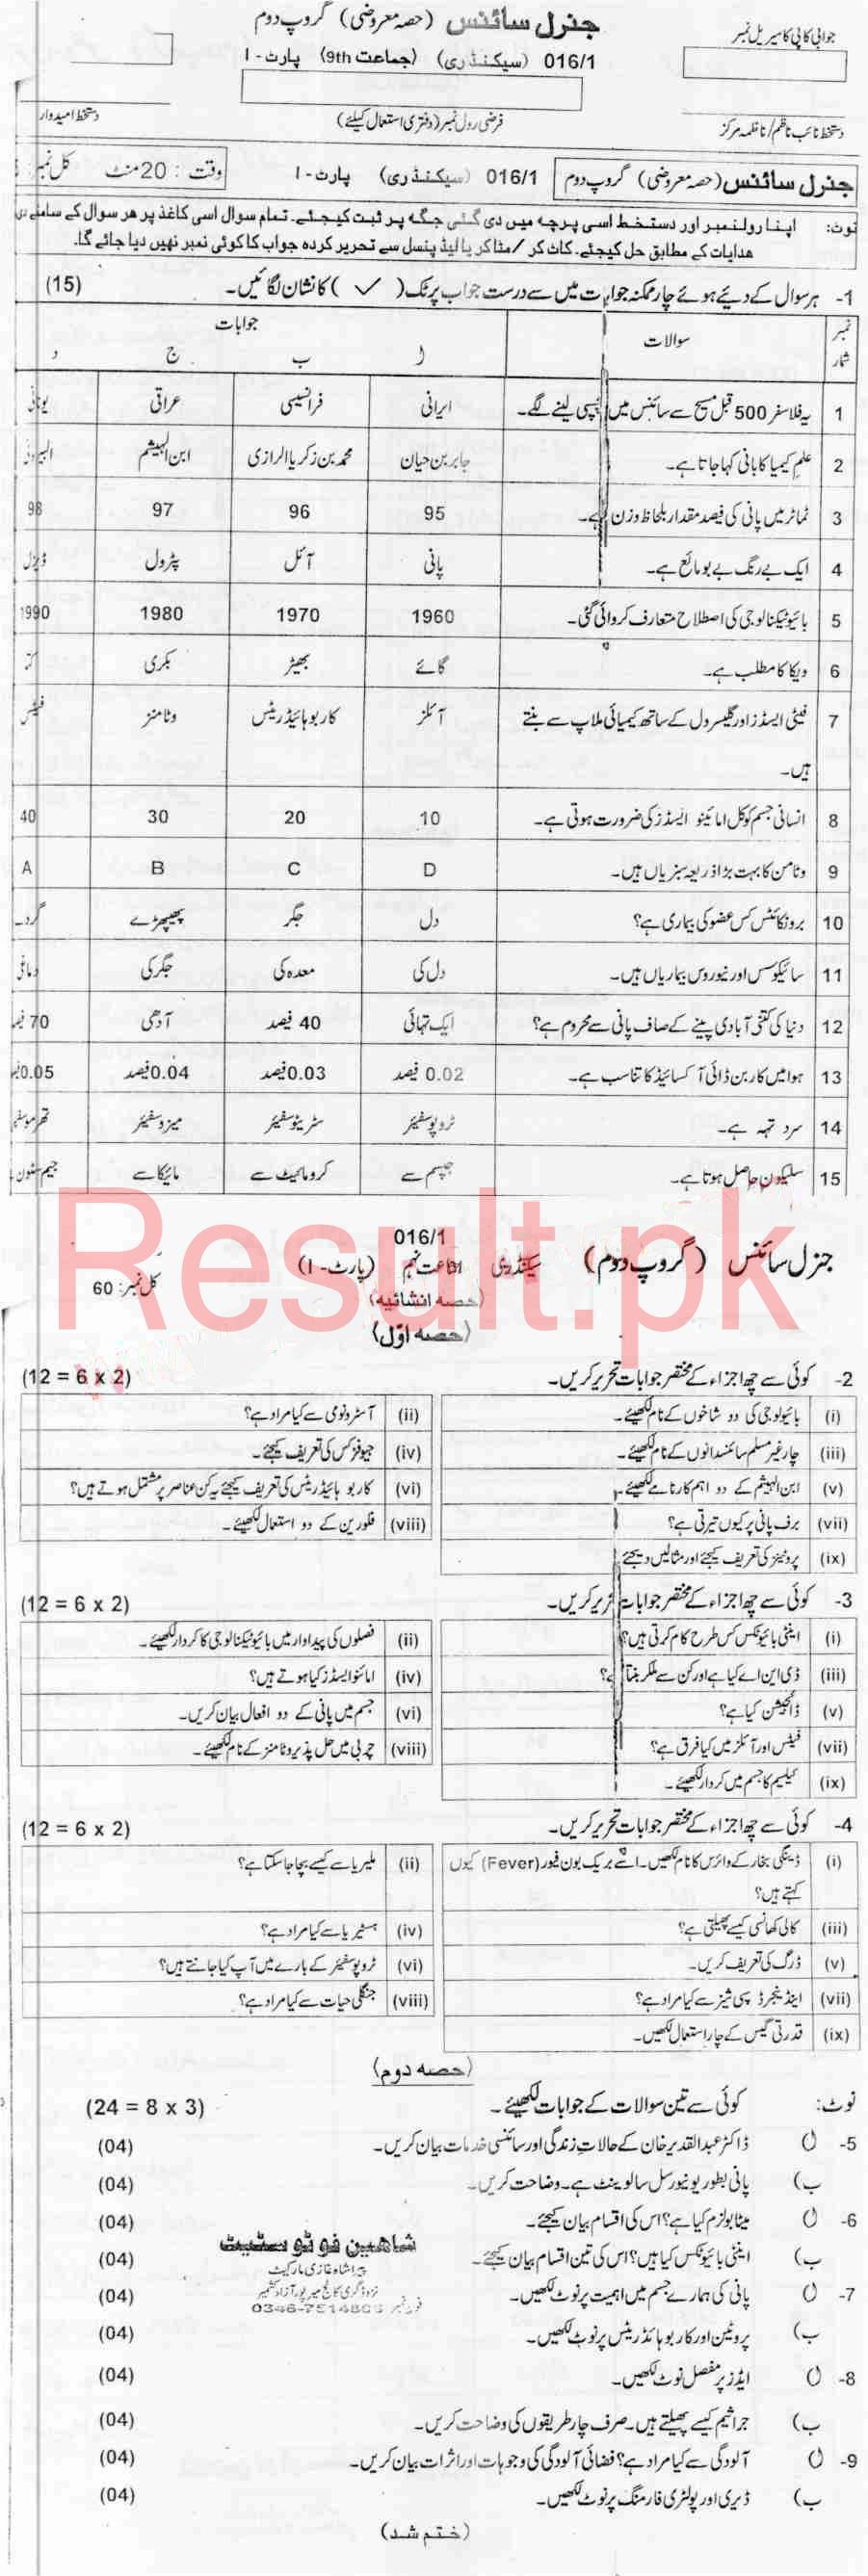 جنرل سائنس (حصہ معروضی) گروپ دوم
جوابی کاپی کا سیریل نمبر
016/1 (سیکنڈری) (جماعت 9th) پارٹ - I
فرضی رول نمبر (دفتری استعمال کیلئے)
دستخط نائب ناظم/ناظمہ مرکز
دستخط امیدوار
جنرل سائنس (حصہ معروضی) گروپ دوم 016/1 (سیکنڈری) پارٹ - I وقت : 20 منٹ کل نمبر:
نوٹ: اپنا رولنمبر اور دستخط اسی پرچہ میں دی گئی جگہ پر ثبت کیجئے۔ تمام سوال اسی کاغذ پر ہر سوال کے سامنے
ہدایات کے مطابق حل کیجئے۔ کاٹ کر /مٹا کر یا لیڈ پنسل سے تحریر کردہ جواب کا کوئی نمبر نہیں دیا جائے گا۔
1- ہر سوال کے دیئے ہوئے چار ممکنہ جوابات میں سے درست جواب پر ٹک (✓) کا نشان لگائیں۔ (15)
نمبر شمار سوالات جوابات
ا ب ج د
1 یہ فلاسفر 500 قبل مسیح سے سائنس میں دلچسپی لینے لگے۔ ایرانی فرانسیسی عراقی یونانی
2 علم کیمیا کا بانی کہا جاتا ہے۔ جابر بن حیان محمد بن زکریا الرازی ابن الہیشم البیرونی
3 ٹماٹر میں پانی کی فیصد مقدار بلحاظ وزن ہے۔ 95 96 97 98
4 ایک بے رنگ بے بو مائع ہے۔ پانی آئل پٹرول ڈیزل
5 بائیو ٹیکنالوجی کی اصطلاح متعارف کروائی گئی۔ 1960 1970 1980 1990
6 ویکا کا مطلب ہے۔ گائے بھیڑ بکری
7 فیٹی ایسڈز اور گلیسرول کے ساتھ کیمیائی ملاپ سے بنتے ہیں۔ آئلز کاربوہائیڈریٹس وٹامنز فیٹس
8 انسانی جسم کو کل امائینو ایسڈز کی ضرورت ہوتی ہے۔ 10 20 30 40
9 وٹامن کا بہت بڑا ذریعہ سبزیاں ہیں۔ D C B A
10 برونکائٹس کس عضو کی بیماری ہے؟ دل جگر پھیپھڑے
11 سائیکوسس اور نیوروس بیماریاں ہیں۔ دل کی معدہ کی جگر کی
12 دنیا کی کتنی آبادی پینے کے صاف پانی سے محروم ہے؟ ایک تہائی 40 فیصد آدھی 70
13 ہوا میں کاربن ڈائی آکسائیڈ کا تناسب ہے۔ 0.02 فیصد 0.03 فیصد 0.04 فیصد 0.05
14 سرد تہہ ہے۔ ٹروپوسفیئر سٹریٹوسفیئر میزوسفیئر
15 سلیکون حاصل ہوتا ہے۔ جپسم سے کرومائیٹ سے مائیکا سے
Result.pk
016/1
جنرل سائنس (گروپ دوم) سیکنڈری جماعت نہم (پارٹ - I)
کل نمبر: 60
(حصہ انشائیہ)
(حصہ اوّل)
2- کوئی سے چھ اجزاء کے مختصر جوابات تحریر کریں۔ (12 = 6 x 2)
(i) بائیولوجی کی دو شاخوں کے نام لکھیئے۔ (ii) آسٹرونومی سے کیا مراد ہے؟
(iii) چار غیر مسلم سائنسدانوں کے نام لکھیئے۔ (iv) جیوفزکس کی تعریف کیجئے۔
(v) ابن الہیشم کے دو اہم کارنامے لکھیئے۔ (vi) کاربو ہائیڈریٹس کی تعریف کیجئے یہ کن عناصر پر مشتمل ہوتے ہیں؟
(vii) برف پانی پر کیوں تیرتی ہے؟ (viii) فلورین کے دو استعمال لکھیئے۔
(ix) پروٹینز کی تعریف کیجئے اور مثالیں دیجئے
3- کوئی سے چھ اجزاء کے مختصر جوابات تحریر کریں۔ (12 = 6 x 2)
(i) اینٹی بائیوٹکس کس طرح کام کرتی ہیں؟ (ii) فصلوں کی پیداوار میں بائیوٹیکنالوجی کا کردار لکھیئے۔
(iii) ڈی این اے کیا ہے اور کن سے ملکر بنتا ہے؟ (iv) امائنو ایسڈز کیا ہوتے ہیں؟
(v) ڈائجیشن کیا ہے؟ (vi) جسم میں پانی کے دو افعال بیان کریں۔
(vii) فیٹس اور آئلز میں کیا فرق ہے؟ (viii) چربی میں حل پذیر وٹامنز کے نام لکھیئے۔
(ix) کیلسیم کا جسم میں کردار لکھیئے۔
4- کوئی سے چھ اجزاء کے مختصر جوابات تحریر کریں۔ (12 = 6 x 2)
(i) ڈینگی بخار کے وائرس کا نام لکھیں۔ اسے بریک بون فیور (Fever) کیوں کہتے ہیں؟ (ii) ملیریا سے کیسے بچا جا سکتا ہے؟
(iii) کالی کھانسی کیسے پھیلتی ہے؟ (iv) ہسٹیریا سے کیا مراد ہے؟
(v) ڈرگ کی تعریف کریں۔ (vi) ٹروپوسفیئر کے بارے میں آپ کیا جانتے ہیں؟
(vii) اینڈینجرڈ سپی شیز سے کیا مراد ہے؟ (viii) جنگلی حیات سے کیا مراد ہے؟
(ix) قدرتی گیس کے چار استعمال لکھیں۔
(حصہ دوم)
نوٹ: کوئی سے تین سوالات کے جوابات لکھیئے۔ (24 = 8 x 3)
5- ا) ڈاکٹر عبدالقدیر خان کے حالات زندگی اور سائنسی خدمات بیان کریں۔ (04)
ب) پانی بطور یونیورسل سالوینٹ ہے۔ وضاحت کریں۔ (04)
6- ا) میٹابولزم کیا ہے؟ اس کی اقسام بیان کیجئے۔ (04)
ب) اینٹی بائیوٹکس کیا ہیں؟ اس کی تین اقسام بیان کیجئے۔ (04)
7- ا) پانی کی ہمارے جسم میں اہمیت پر نوٹ لکھیں۔ (04)
ب) پروٹین اور کاربوہائیڈریٹس پر نوٹ لکھیں۔ (04)
8- ا) ایڈز پر مفصل نوٹ لکھیں۔ (04)
ب) جراثیم کیسے پھیلتے ہیں۔ صرف چار طریقوں کی وضاحت کریں۔ (04)
9- ا) آلودگی سے کیا مراد ہے؟ فضائی آلودگی کی وجوہات اور اثرات بیان کریں۔ (04)
ب) ڈیری اور پولٹری فارمنگ پر نوٹ لکھیں۔ (04)
شاھین فوٹو سٹیٹ
پیرا شاہ غازی مارکیٹ
نزد ڈگری کالج میرپور آزاد کشمیر
(ختم شد)